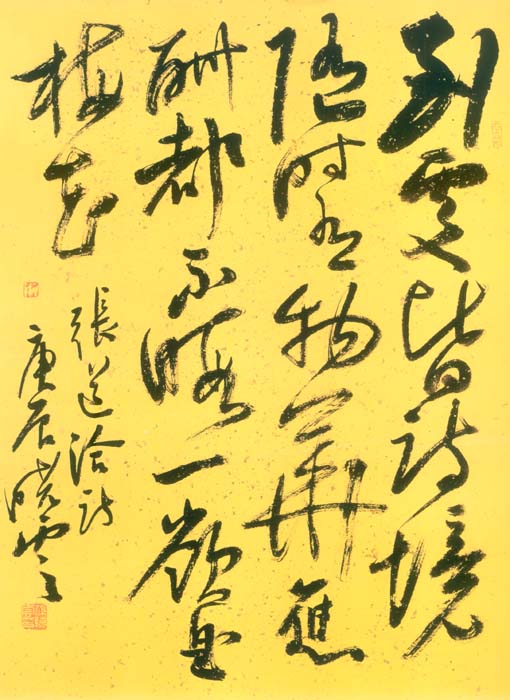 到處皆詩境
隨時有物華應
酬都不暇一嶺是
梅花
張道洽詩
庚辰曉雲